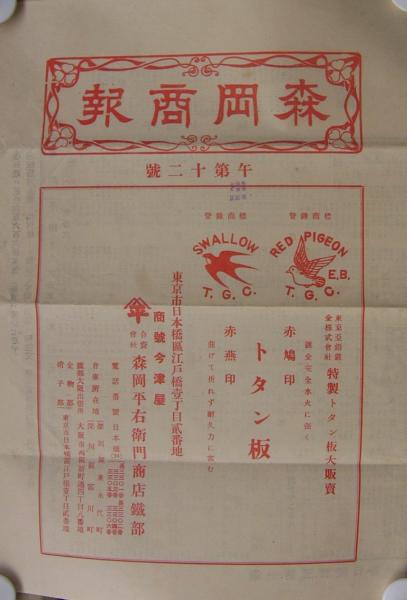 森岡商報
午第十二號
登録商標
登録商標
RED PIGEON
E.B.
T.G.C.
SWALLOW
T.G.C.
東京亞鉛鍍金株式會社 特製トタン板大販賣
赤鳩印
鍍金完全水火に強く
トタン板
赤燕印
曲げて折れず耐久力に富む
東京市日本橋區江戸橋壹丁目貳番地
商號今津屋
合資會社 森岡平右衛門商店鐵部
電話番號日本橋
倉庫所在地
深川區富川町
鐵部大阪出張所
金物部
硝子部
東京市日本橋區江戸橋壹丁目貳番地